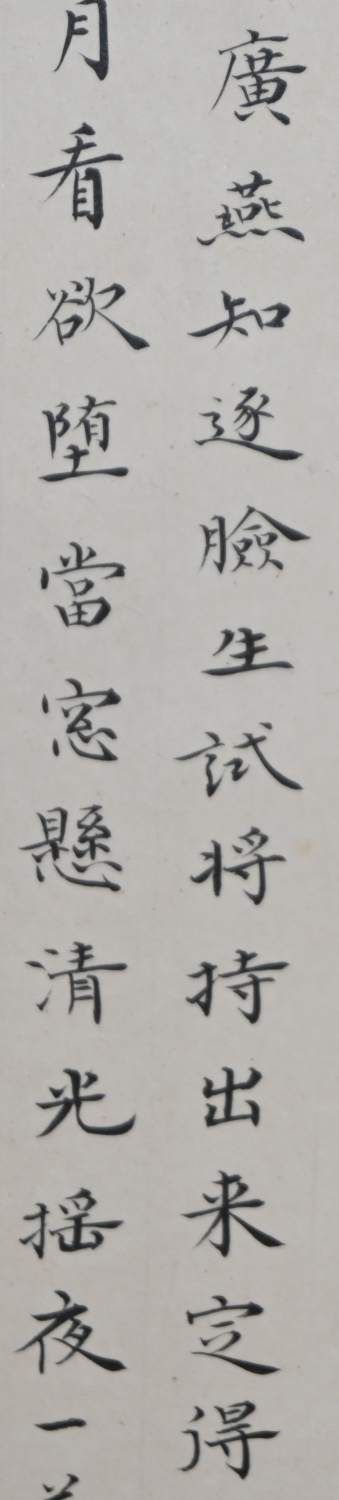 廣燕知逐臉生試将持出来定得
月看欲堕當窓懸清光揺夜一